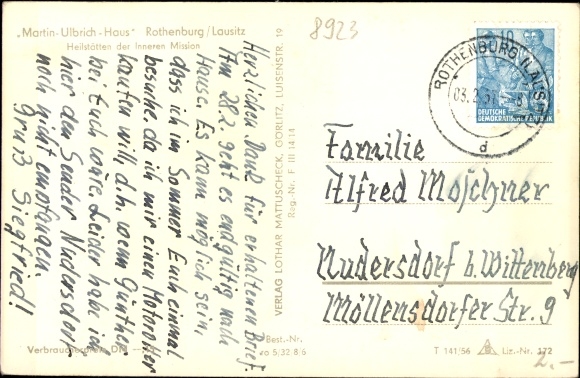 „Martin-Ulbrich-Haus" Rothenburg/Lausitz
Heilstätten der Inneren Mission
8923
Herzlichen Dank für erhaltenen Brief.
Am 28.2. geht es endgültig nach
Hause. Es kann möglich sein,
dass ich im Sommer Euch einmal
besuche, da ich mir einen Motorroller
kaufen will, d.h. wenn Günther
bei Euch wäre. Leider habe ich
hier den Sender Nudersdorf
noch nicht empfangen.
Gruß Siegfried!
VERLAG LOTHAR MATTUSCHECK, GÖRLITZ, LUISENSTR. 19
Reg.-Nr. F III 14 14
10
DEUTSCHE
DEMOKRATISCHE REPUBLIK
ROTHENBURG (LAUSITZ)
03.2.57
d
Familie
Alfred Moschner
Nudersdorf b. Wittenberg
Möllensdorfer Str. 9
Verbraucherpreis DM
Best.-Nr.
T 141/56
Liz.-Nr. 172
2.-